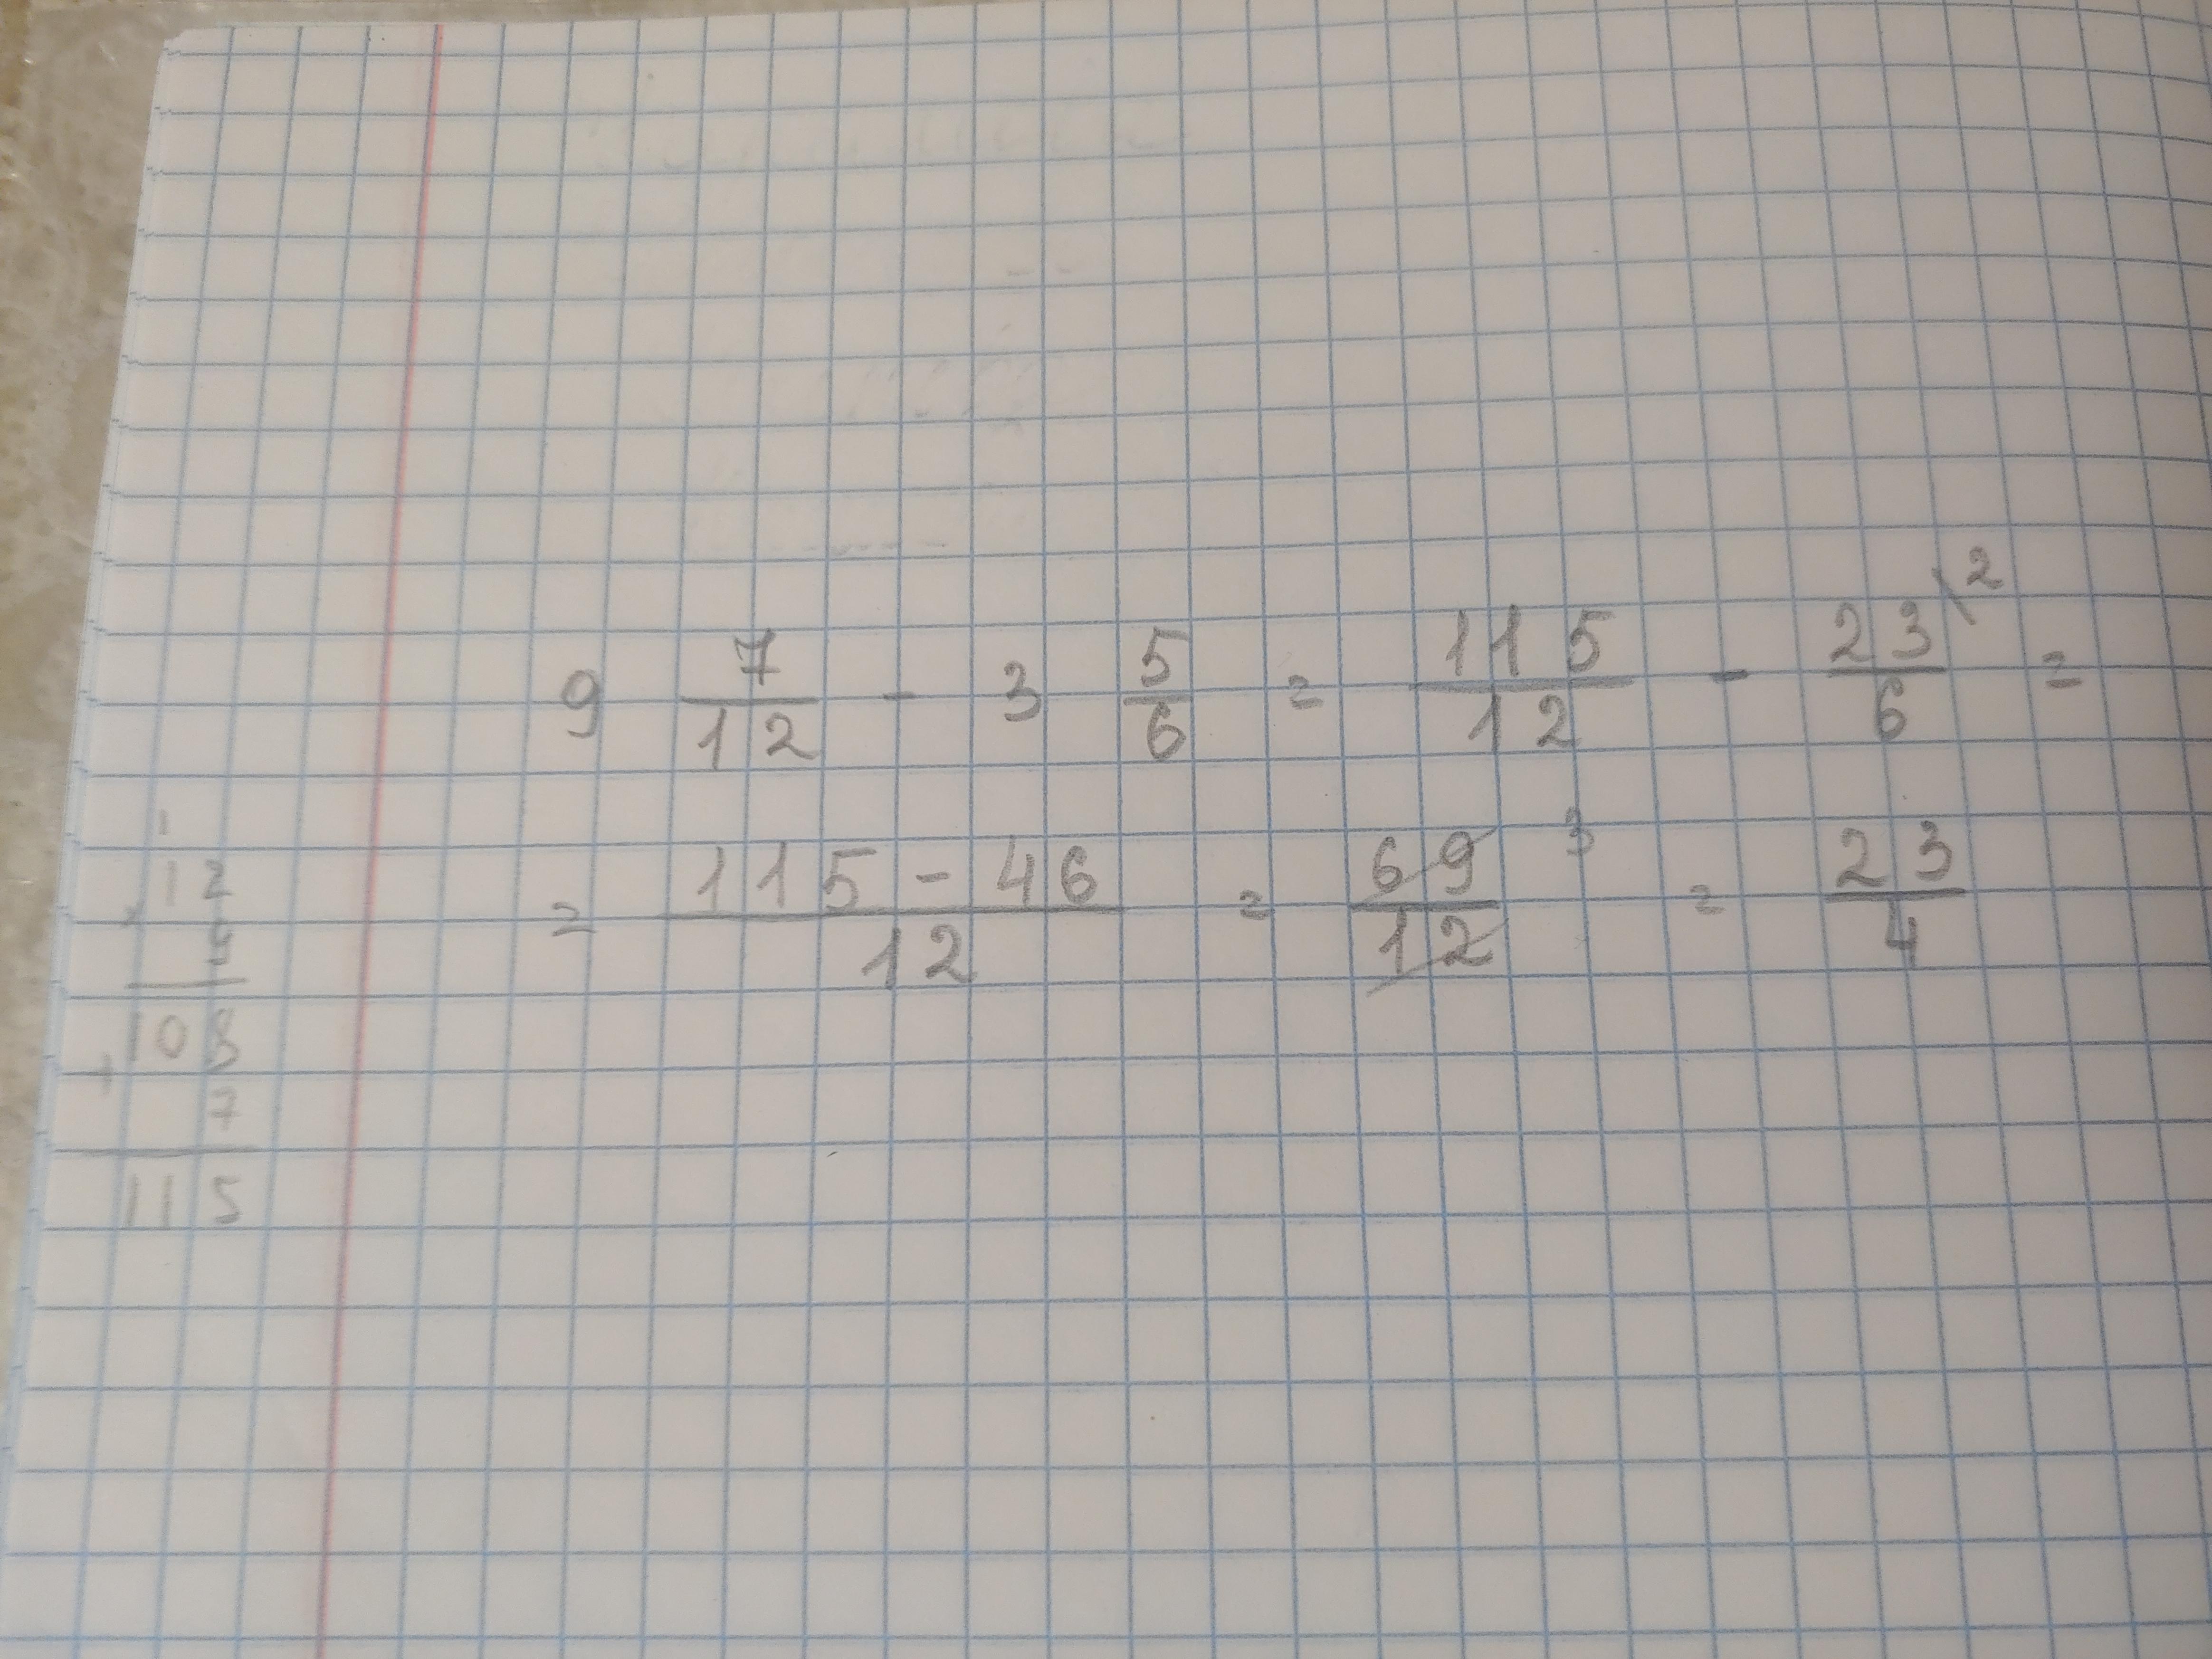 9 7/12 - 3 5/6 = 115/12 - 23\2/6 =
= 115-46/12 = 69/12 3 = 23/4
1
× 12
9
108
+ 7
115